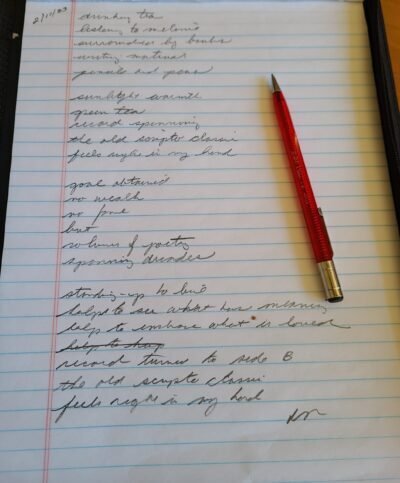 2/11/23
drinking tea
listening to
surrounded by books
writing material
pencils and pens
sunlight warmth
green tea
record spinning
the old scripto classic
feels right in my hand
goal obtained
no wealth
no fame
but
volumes of poetry
spanning decades
standing-up to
helps to see what has meaning
helps to embrace what is loved
helps to
record turned to side B
the old scripto classic
feels right in my hand